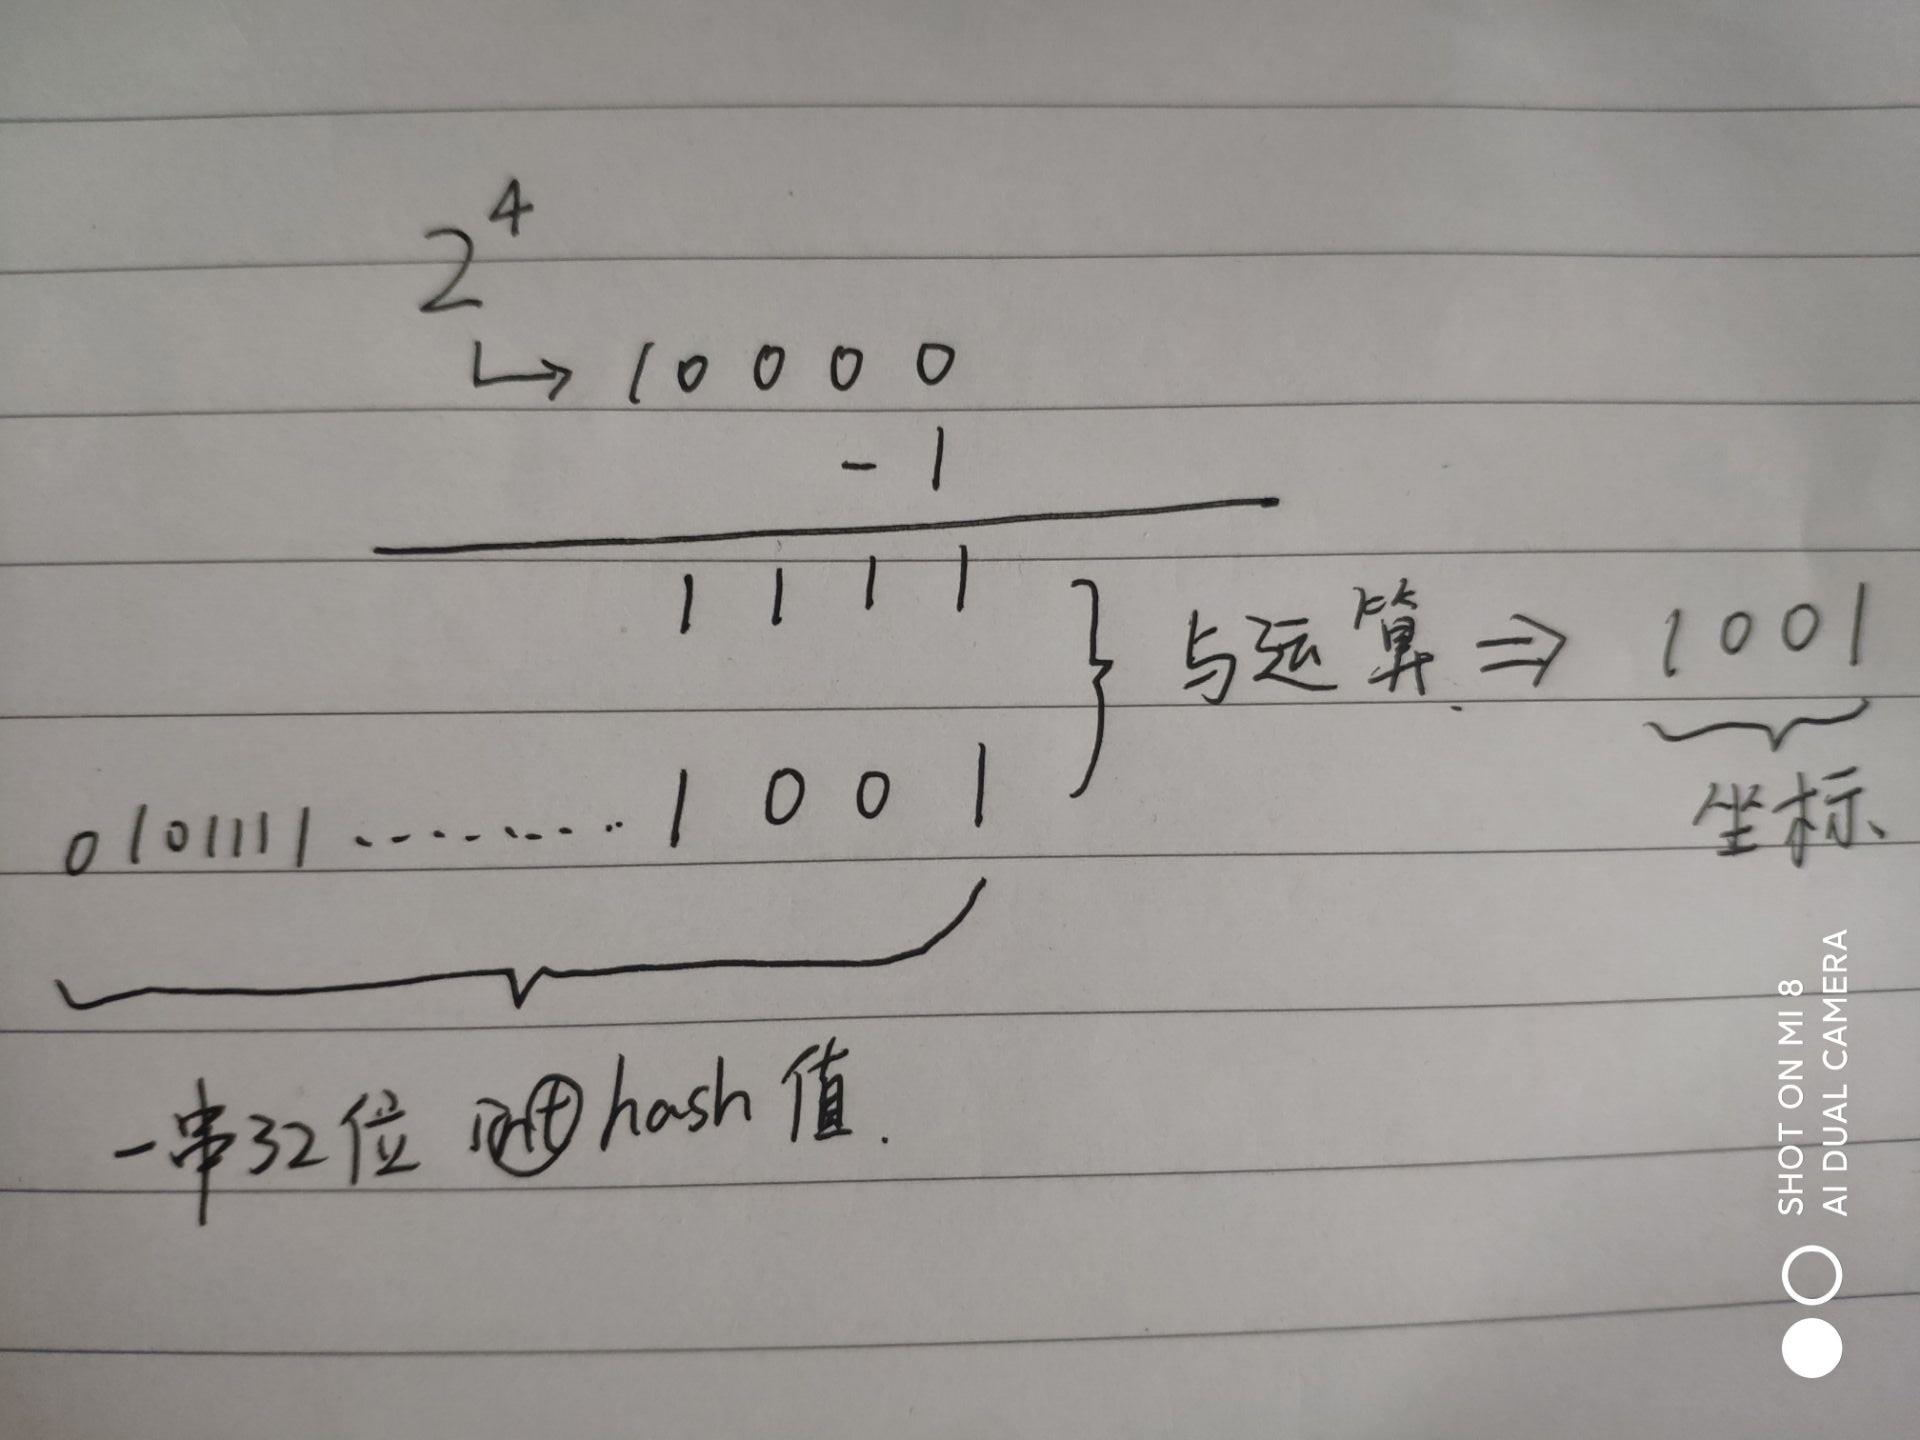 2⁴
↳ 10000
- 1
1111
} 与运算. ⇒ 1001
0101111 ········· 1001
坐标
一串32位 int hash 值.
SHOT ON MI 8
AI DUAL CAMERA